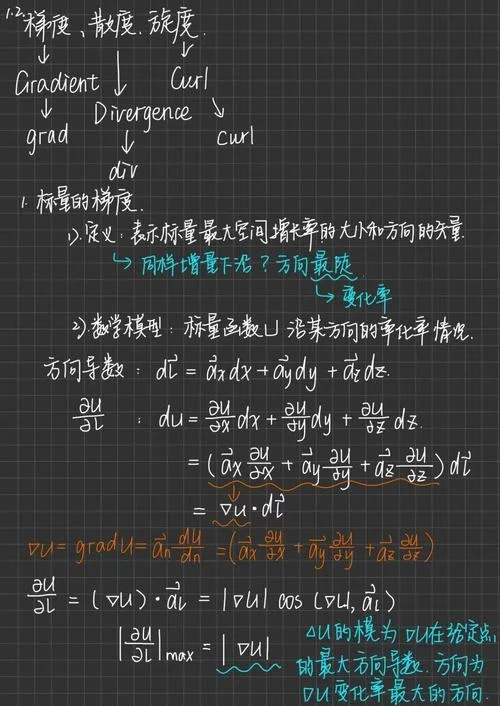 1.2. 梯度、散度、旋度.
↓ ↓ ↓
Gradient Curl
↓ Divergence ↘
grad ↓ curl
div
1. 标量的梯度.
1). 定义: 表示标量最大空间增长率的大小和方向的矢量.
↳ 同样增量下沿?方向最陡
↳ 变化率
2) 数学模型: 标量函数U 沿某方向的变化率情况.
方向导数: dl⃗ = a⃗x dx + a⃗y dy + a⃗z dz.
∂U/∂l : du = ∂U/∂x dx + ∂U/∂y dy + ∂U/∂z dz.
= (a⃗x ∂U/∂x + a⃗y ∂U/∂y + a⃗z ∂U/∂z) dl⃗
= ∇u · dl⃗
∇u = grad U = a⃗n du/dn = (a⃗x ∂U/∂x + a⃗y ∂U/∂y + a⃗z ∂U/∂z)
∂U/∂l = (∇U) · a⃗l = |∇U| cos (∇U, a⃗l)
|∂U/∂l|max = |∇U|
△U的模为∇U在给定点
的最大方向导数. 方向为
∇U变化率最大的方向.